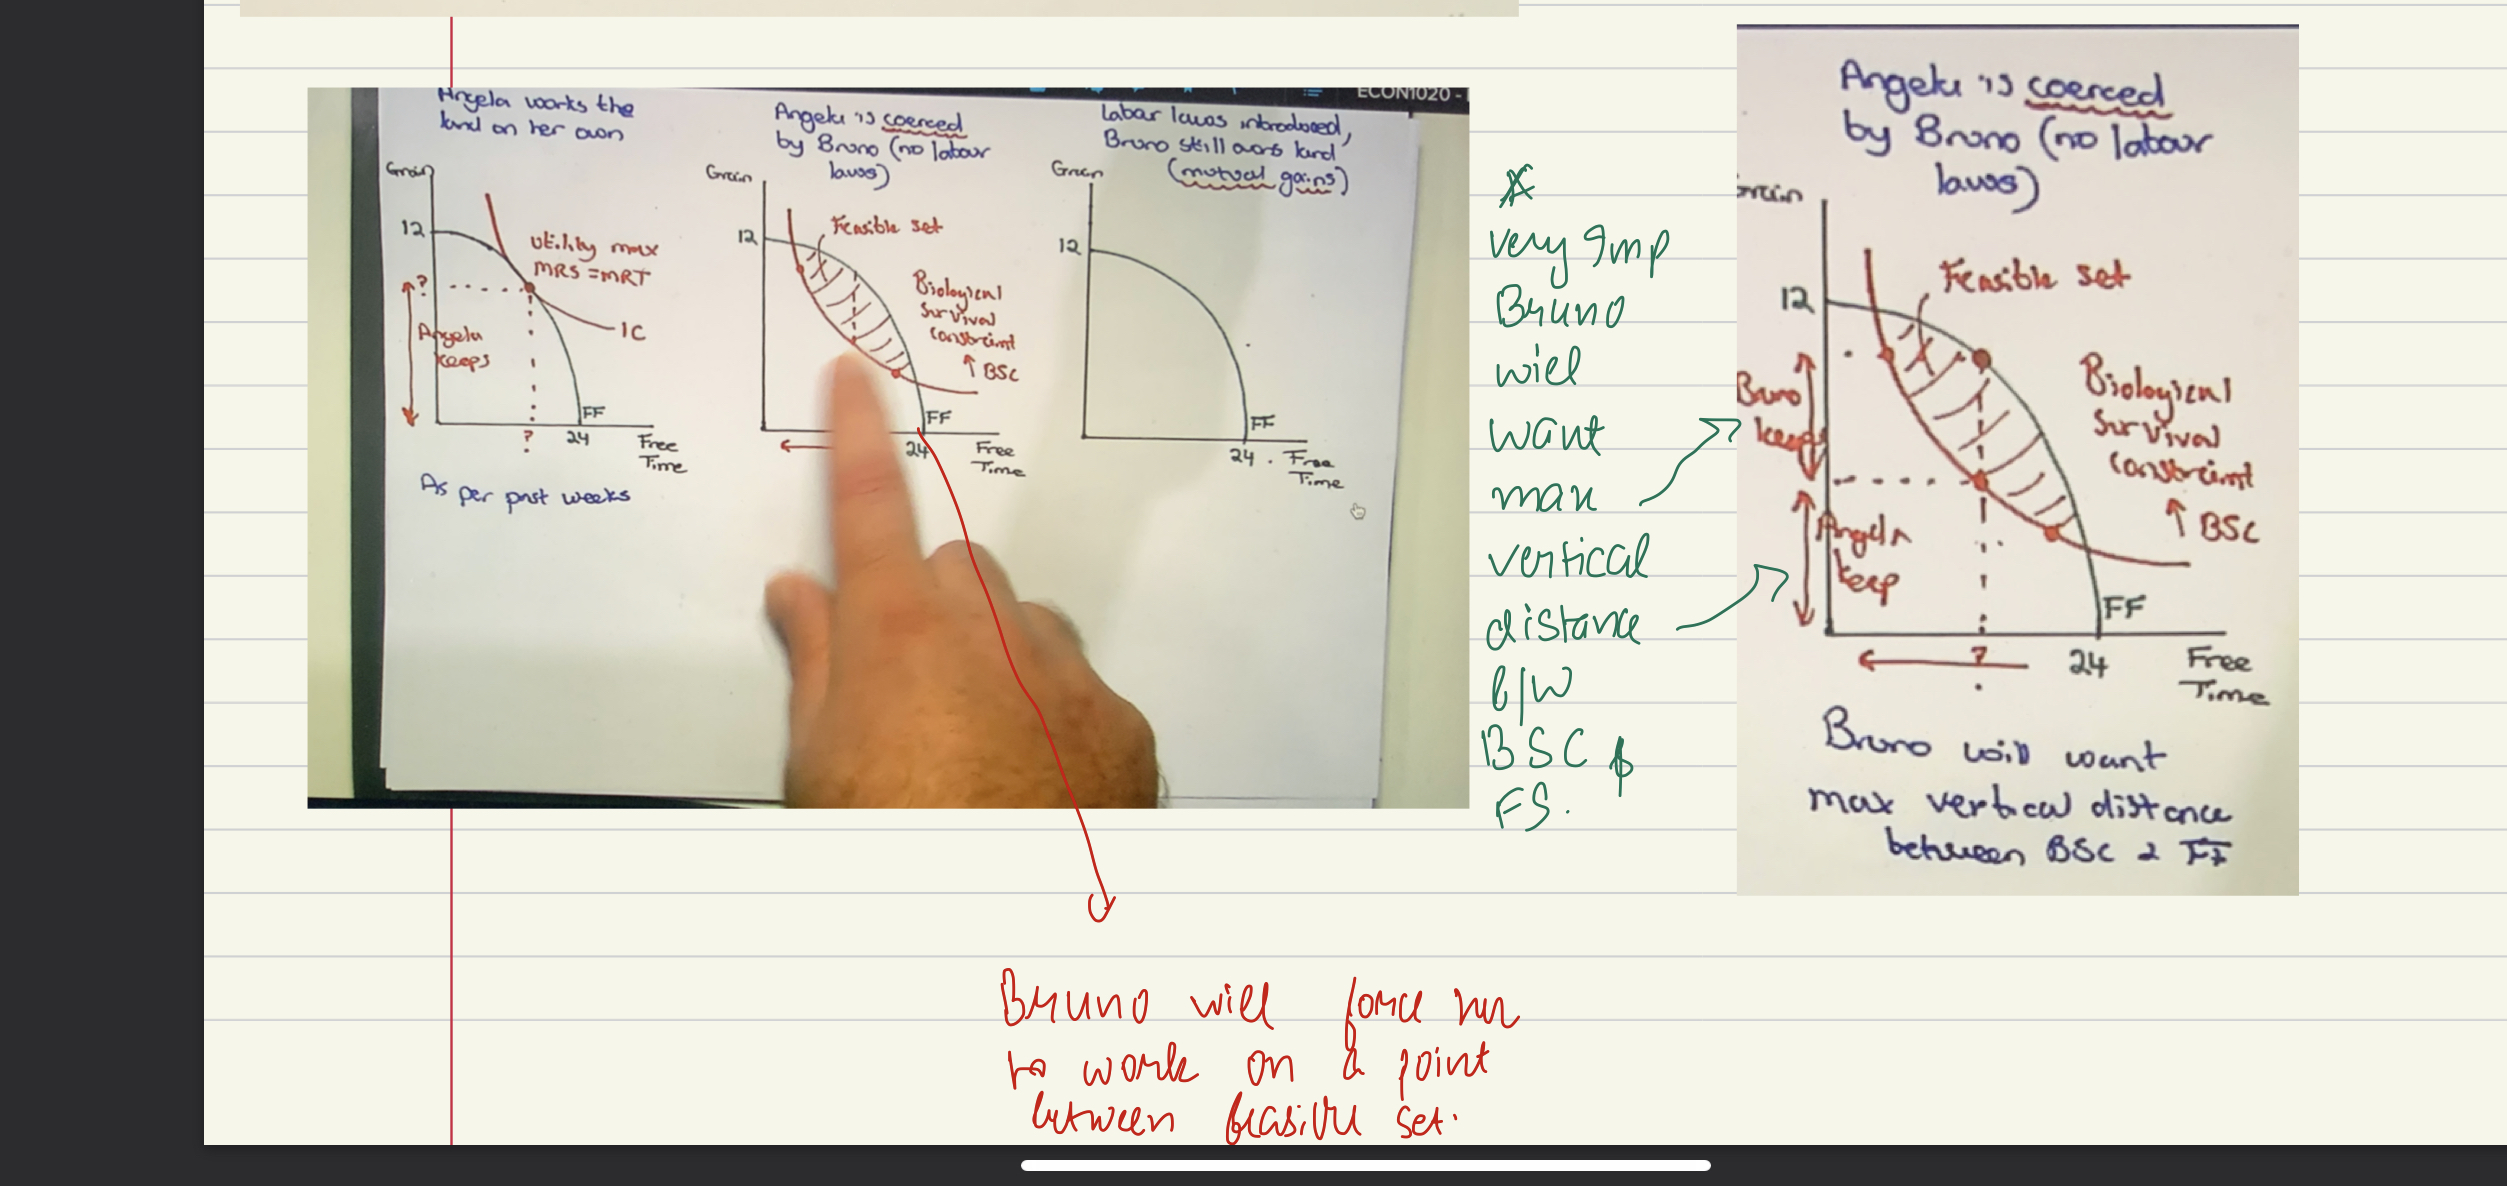 ECON1020 -
Angela works the
land on her own
Grain
12
?
Utility max
MRS = MRT
IC
Angela
keeps
FF
?
24
Free
Time
As per past weeks
Angela is coerced
by Bruno (no labour
laws)
Grain
12
Feasible set
Biological
Survival
Constraint
↑ BSC
FF
24
Free
Time
Labar laws introduced,
Bruno still owns land
(mutual gains)
Grain
12
FF
24
Free
Time
very Imp
Bruno
will
want
max
vertical
distance
b/w
BSC &
FS.
Angela is coerced
by Bruno (no labour
laws)
Grain
12
Feasible set
Bruno
keeps
Biological
Survival
Constraint
↑ BSC
Angela
keep
FF
?
24
Free
Time
Bruno will want
max vertical distance
between BSC & FF
Bruno will force her
to work on a point
between feasible set.